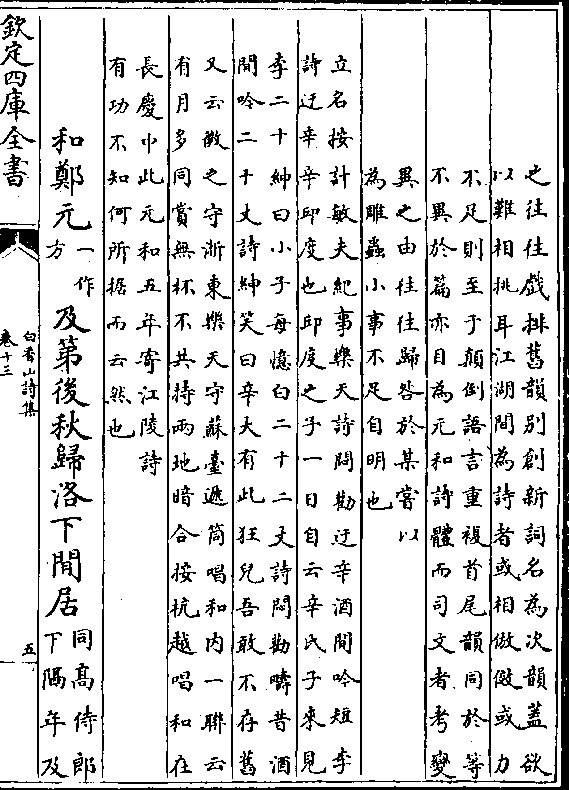 之往往戲排舊韻別創新詞名為次韻蓋欲
以難相挑耳江湖間為詩者或相倣傚或力
不足則至于顛倒語言重複首尾韻同於等
不異於篇亦目為元和詩體而司文者考變
異之由往往歸咎於某嘗以
為雕蟲小事不足自明也
立名按計敏夫紀事樂天詩悶勸迂辛酒閒吟短李
詩迂辛辛邱度也邱度之子一日自云辛氏子來見
李二十紳曰小子每憶白二十二丈詩悶勸疇昔酒
閒吟二十丈詩紳笑曰辛大有此狂兒吾敢不存舊
又云微之守浙東樂天守蘇臺遞筒唱和内一聯云
有月多同賞無杯不共持兩地暗合按杭越唱和在
長慶中此元和五年寄江陵詩
有功不知何所据而云然也
和鄭元一作方及第後秋歸洛下閒居同高侍郎下隔年及
欽定四庫全書
白香山詩集
卷十三
五